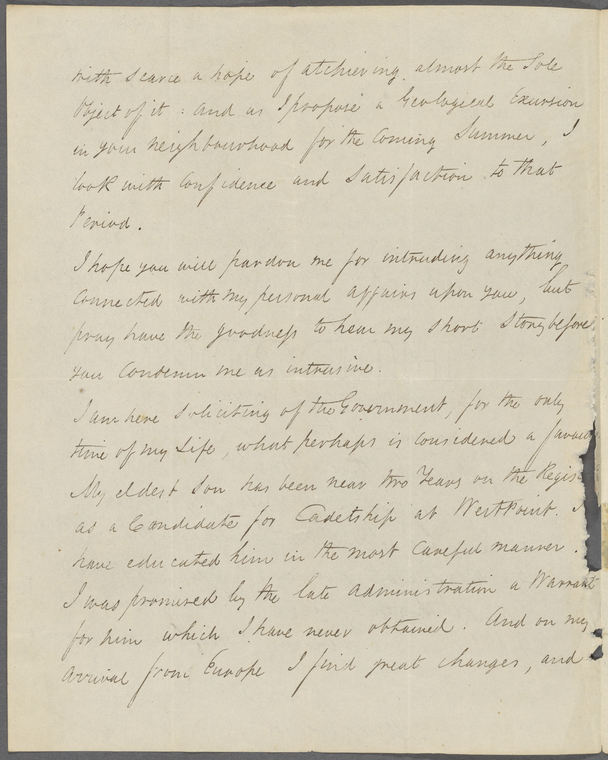 with scarce a hope of atchieving almost the Sole
Object of it : and as I propose a Geological Excursion
in your neighbourhood for the Coming Summer, I
look with Confidence and Satisfaction to that
Period.
I hope you will pardon me for intruding anything
Connected with my personal affairs upon you, but
pray have the goodness to hear my short Story before
you Condemn me as intrusive.
I am here Soliciting of the Government, for the only
time of my Life, what perhaps is considered a favour
My eldest Son has been near two Years on the Regis
as a Candidate for Cadetship at West Point. I
have educated him in the most Careful manner.
I was promised by the late Administration a Warrant
for him which I have never obtained. And on my
Arrival from Europe I find great changes, and